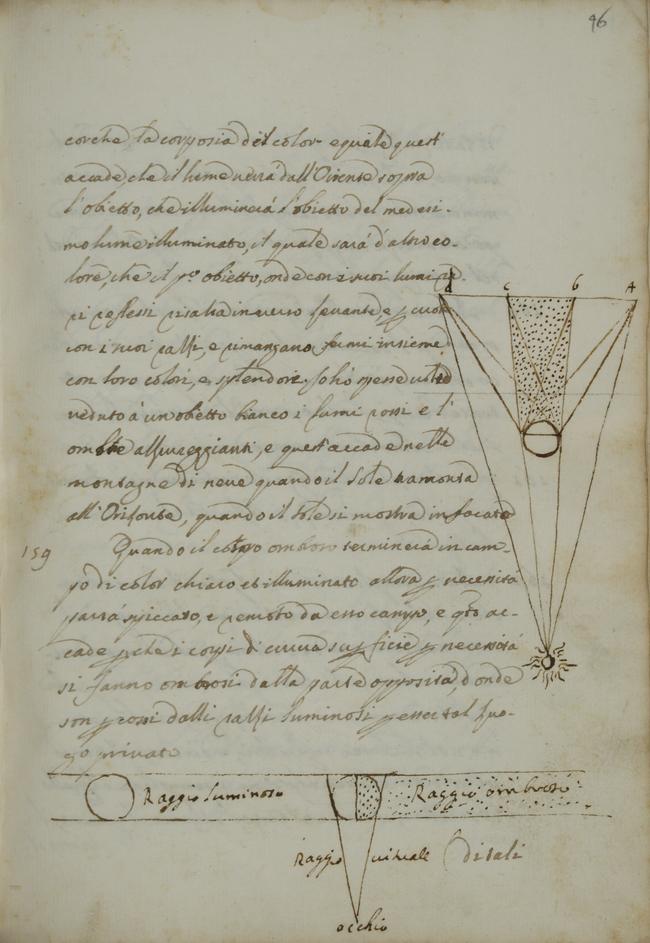 96
corche, la corposia del color equale quest'
accade, che il lume verrà dall'Oriente sopra
l'obietto, che illuminerà l'obietto del medesi-
mo lume illuminato, il quale sarà d'altro co-
lore, che il pº obietto, onde con i suoi lumi
ri reflessi risalta inverso levante, e
con i suoi rassi, e rimanzano fumi insieme
con loro colori, e splendore. Io hò spesse volte
veduto à un obietto bianco i lumi rossi e l'
ombre azzureggianti, e quest'accade nelle
montagne di neve quando il Sole tramonta
all'Orizonte, quando il sole si mostra infocato
159
Quando il corpo ombroso terminerà in cam-
po di color chiaro et illuminato allora p necessità
parrà spiccato, e remoto da esso campo, e qto ac-
cade pche i corpi di curva supficie p necessità
si fanno ombrosi dalla parte opposita, donde
son pcossi dalli razzi luminosi p esser tal luo-
go privato
di tali
d c b A
Raggio luminoso
Raggio ombroso
Raggio visuale
occhio